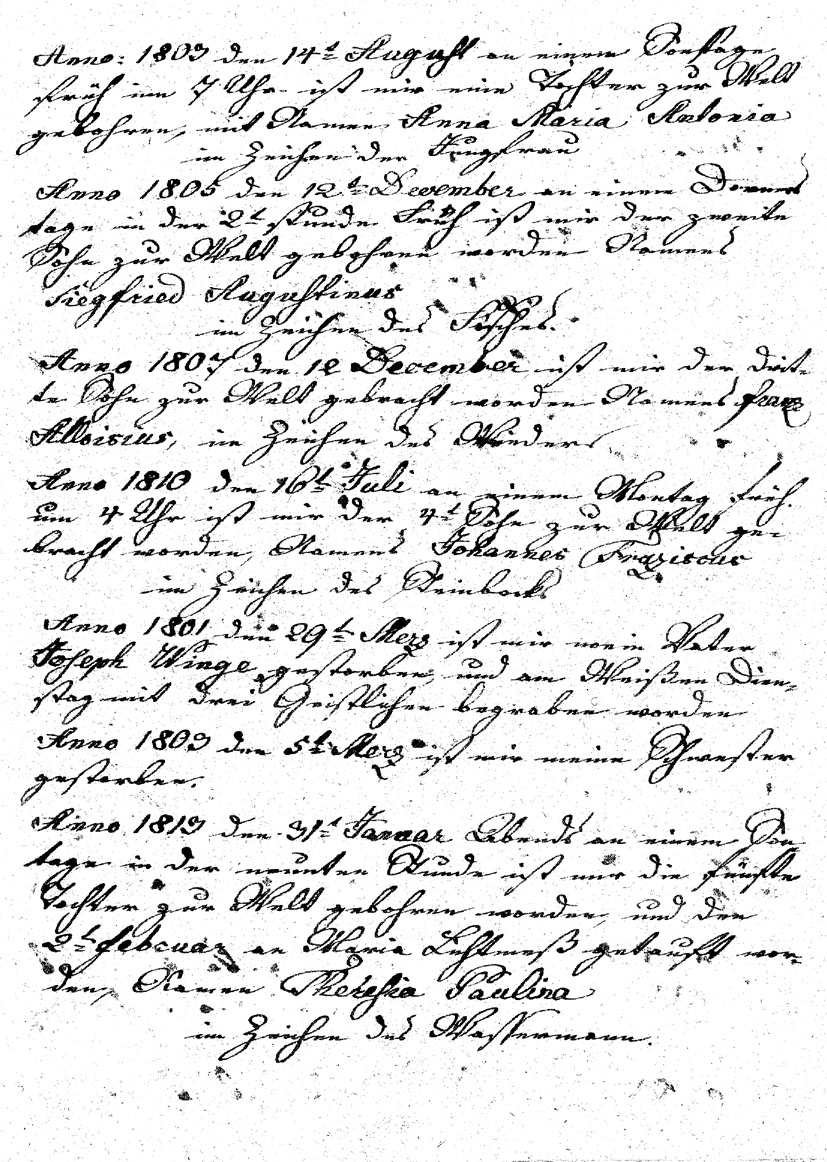 Anno: 1803 den 14t August an einem Sonftage
früh um 7 Uhr ist mir eine Tochter zur Welt
gebohren, mit Namen Anna Maria Antonia
im Zeichen der Jungfrau
Anno 1805 den 12t December an einem Donners
tage in der 2t stunde Früh ist mir der zweite
Sohn zur Welt gebohren worden Namens
Siegfried Augustinus
im Zeichen des Fisches.
Anno 1807 den 12 December ist mir der drit-
te Sohn zur Welt gebracht worden Namens Franz
Alloisius, im Zeichen des Wieders
Anno 1810 den 16t Juli an einem Montag Früh.
um 4 Uhr ist mir der 4t Sohn zur Welt ge-
bracht worden, Namens Johannes Fraziscus
im Zeichen des Steinbocks
Anno 1801 den 29t Merz ist mir mein Vater
Joseph Winge gestorben, und am Weißen Dien-
stag mit drei Geistlichen begraben worden
Anno 1803 den 5t Merz ist mir meine Schwester
gestorben.
Anno 1813 den 31t Januar Abends an einem Son
tage in der neunten Stunde ist mir die fünfte
Tochter zur Welt gebohren worden, und den
2t Februar an Maria Lichtmeß getauft wor-
den, Namen Theresia Paulina
im Zeichen des Wassermann.